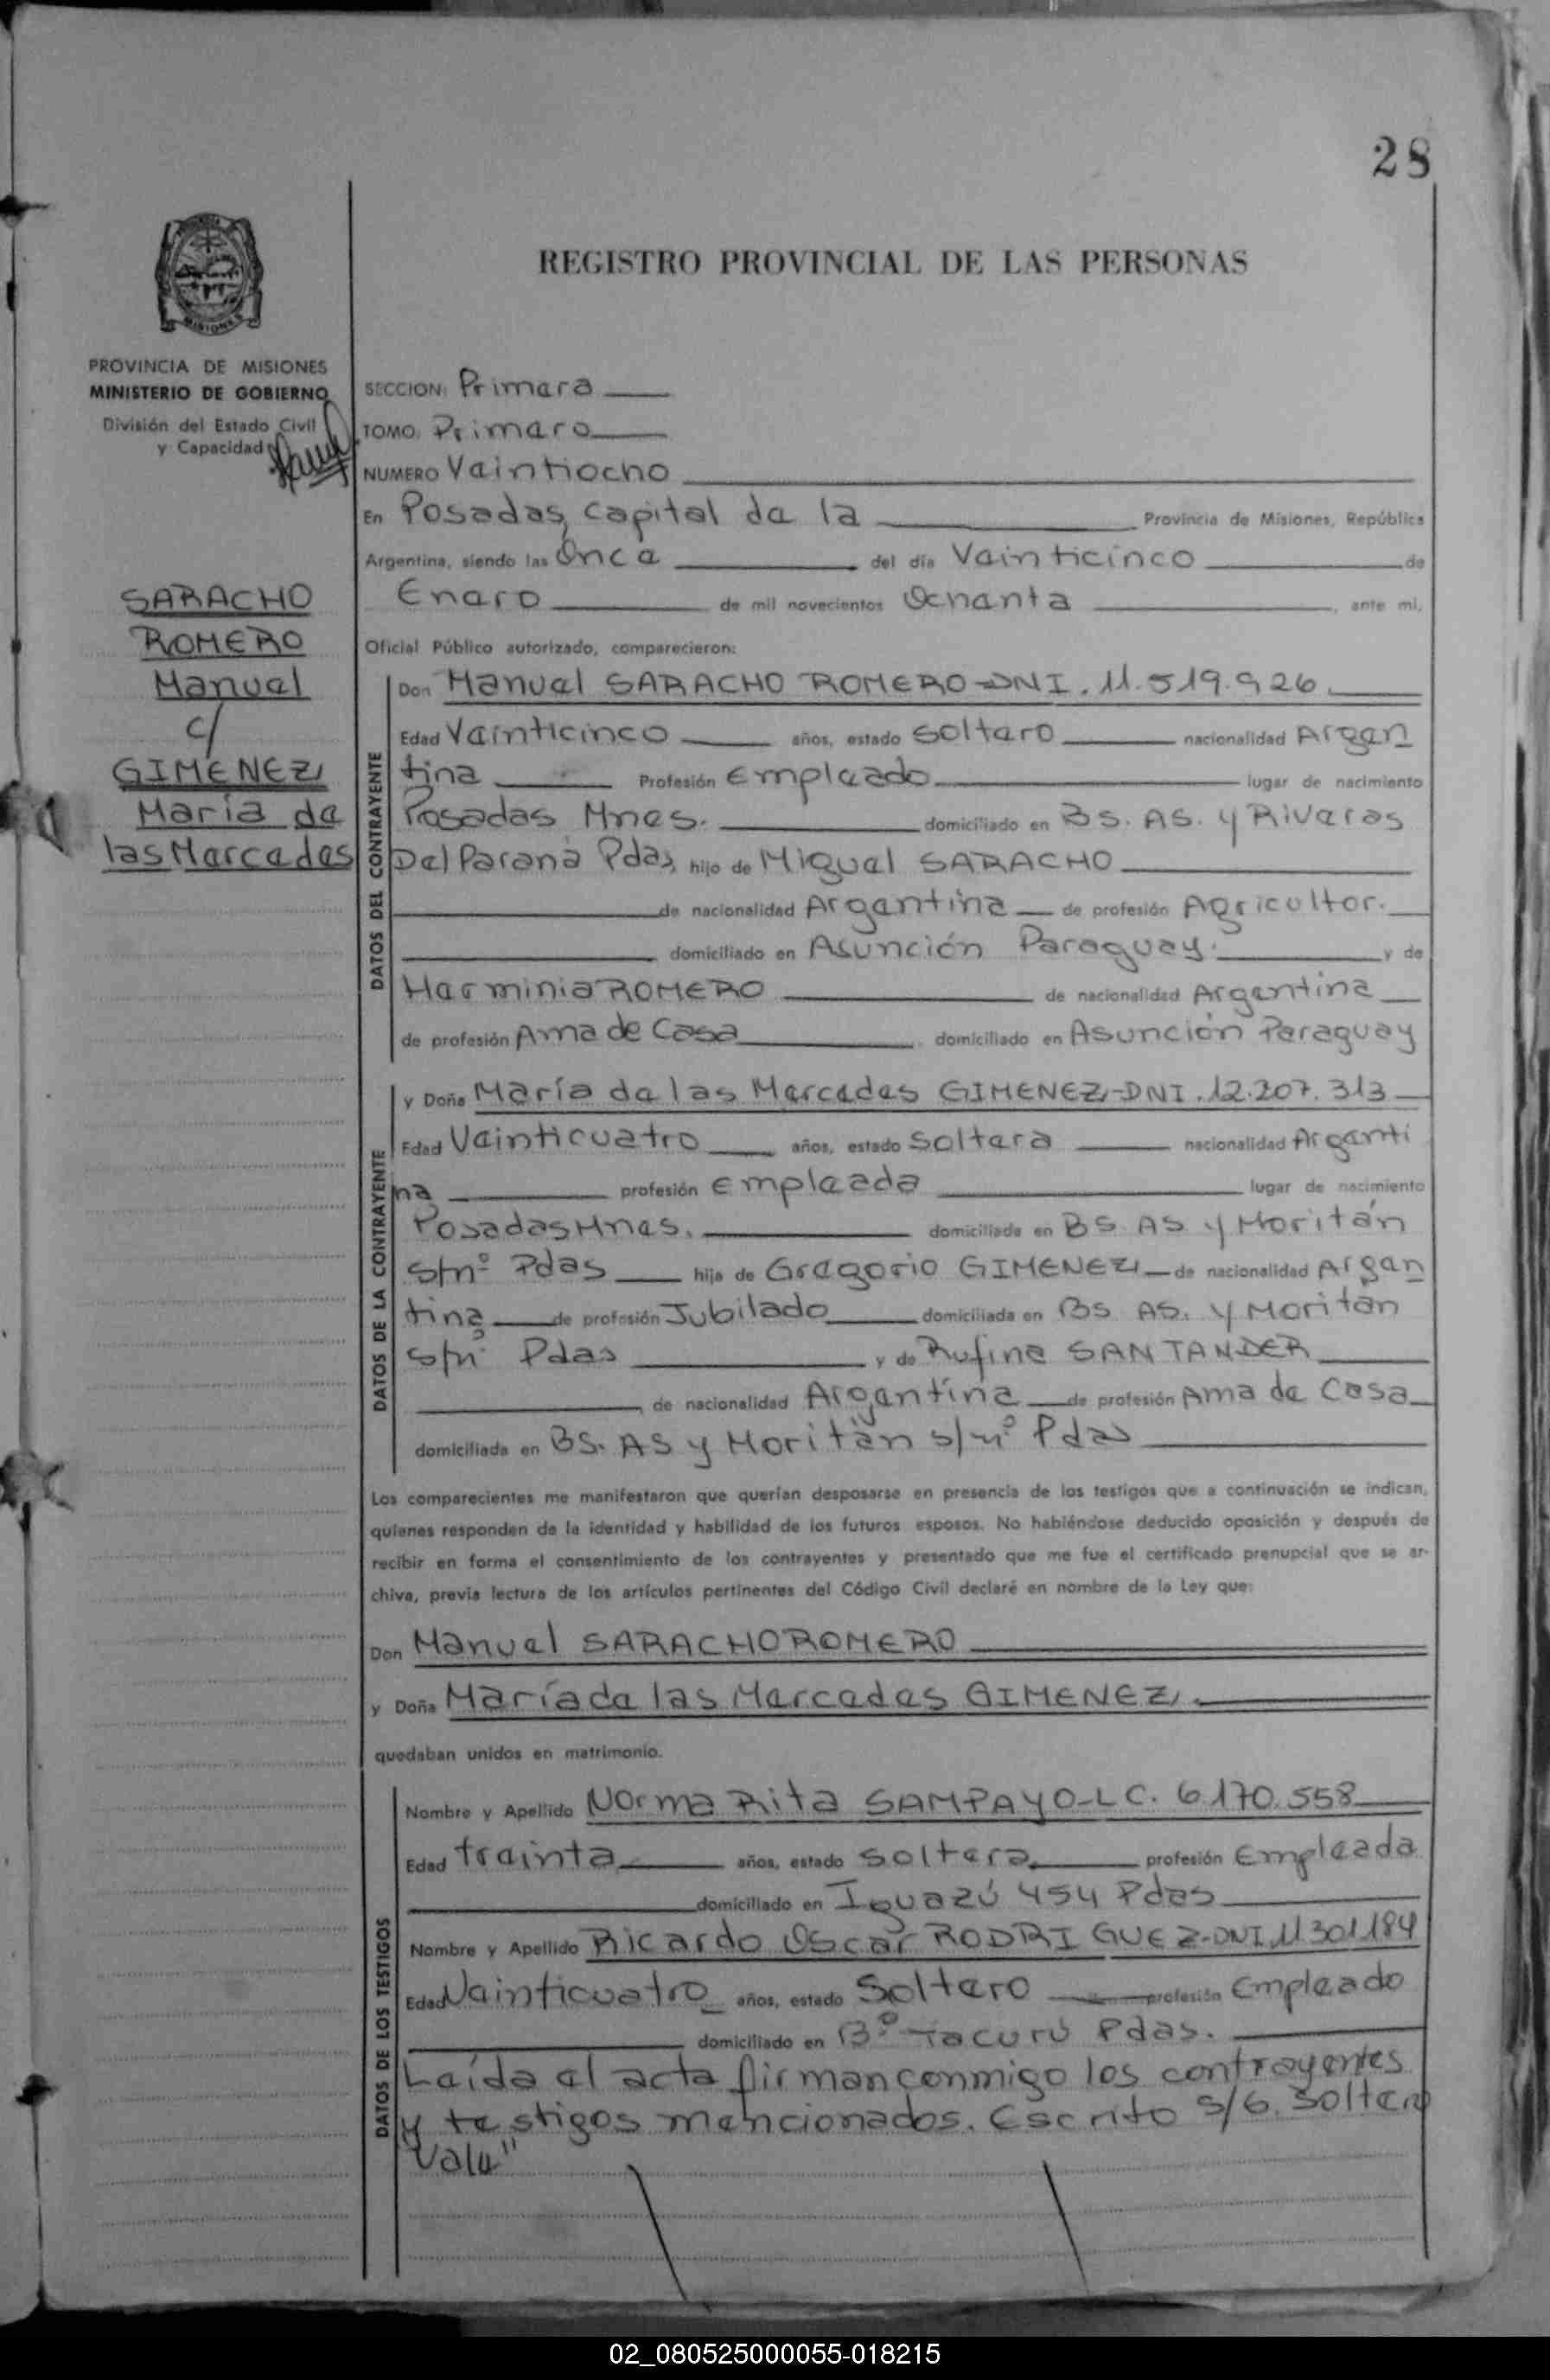 28
REGISTRO PROVINCIAL DE LAS PERSONAS
MISIONES
PROVINCIA DE MISIONES
MINISTERIO DE GOBIERNO
División del Estado Civil
y Capacidad
SARACHO
ROMERO
Manuel
c/
GIMENEZ,
María de
las Mercedes
SECCION: Primera
TOMO: Primero
NUMERO Veintiocho
En Posadas, Capital de la Provincia de Misiones, República
Argentina, siendo las Once del día Veinticinco de
Enero de mil novecientos Ochenta, ante mí,
Oficial Público autorizado, comparecieron:
DATOS DEL CONTRAYENTE
Don Manuel SARACHO ROMERO-DNI. 11.519.926
Edad Veinticinco años, estado Soltero nacionalidad Argen
tina Profesión Empleado lugar de nacimiento
Posadas Mnes. domiciliado en Bs. As. y Riveras
Del Paraná Pdas, hijo de Miguel SARACHO
de nacionalidad Argentina de profesión Agricultor.
domiciliado en Asunción Paraguay. y de
Herminia ROMERO de nacionalidad Argentina
de profesión Ama de Casa domiciliado en Asunción Paraguay
DATOS DE LA CONTRAYENTE
y Doña María de las Mercedes GIMENEZ,-DNI. 12.207.313
Edad Veinticuatro años, estado Soltera nacionalidad Argenti
na profesión Empleada lugar de nacimiento
Posadas Mnes. domiciliada en Bs. As. y Moritán
s/nº Pdas hija de Gregorio GIMENEZ, de nacionalidad Argen
tina de profesión Jubilado domiciliada en Bs. As. y Moritán
s/nº Pdas y de Rufina SANTANDER
de nacionalidad Argentina de profesión Ama de Casa
domiciliada en Bs. As y Moritán s/nº Pdas
Los comparecientes me manifestaron que querían desposarse en presencia de los testigos que a continuación se indican,
quienes responden de la identidad y habilidad de los futuros esposos. No habiéndose deducido oposición y después de
recibir en forma el consentimiento de los contrayentes y presentado que me fue el certificado prenupcial que se ar-
chiva, previa lectura de los artículos pertinentes del Código Civil declaré en nombre de la Ley que:
Don Manuel SARACHO ROMERO
y Doña María de las Mercedes GIMENEZ,.
quedaban unidos en matrimonio.
DATOS DE LOS TESTIGOS
Nombre y Apellido Norma Rita SAMPAYO-LC. 6.170.558
Edad treinta años, estado Soltera profesión Empleada
domiciliado en Iguazú 454 Pdas
Nombre y Apellido Ricardo Oscar RODRIGUEZ-DNI.11301184
Edad Veinticuatro años, estado Soltero profesión Empleado
domiciliado en Bº Tacurú Pdas.
Leída el acta firman conmigo los contrayentes
y testigos mencionados. Escrito s/b. Soltero
Vale"
02_080525000055-018215